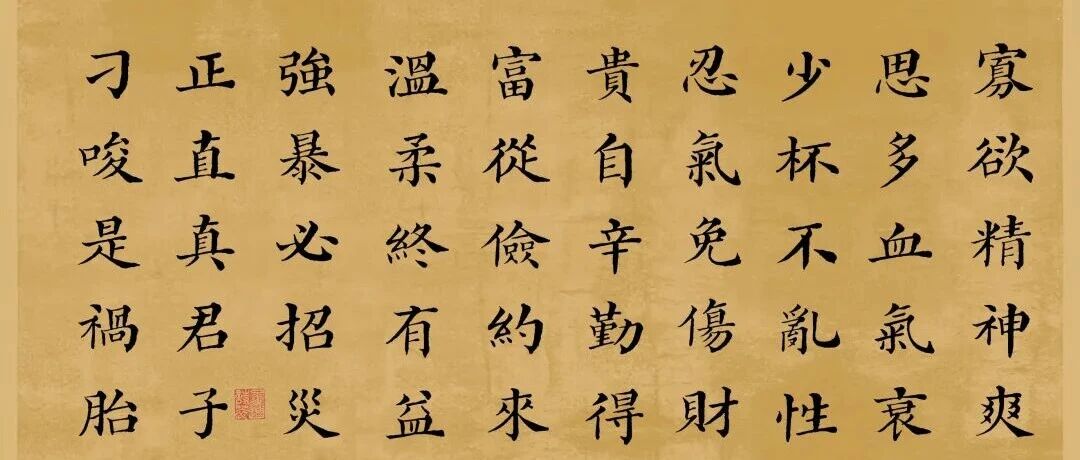 寡欲精神爽
思多血氣衰
少杯不亂性
忍氣免傷財
貴自辛勤得
富從儉約來
溫柔終有益
強暴必招災
正直真君子
刁唆是禍胎